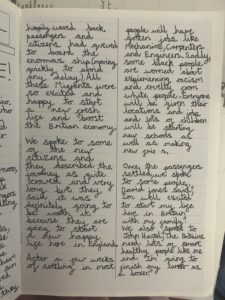 happily waved back
passengers and
citizens had queued
to board the
enormous ship,
quickly to avoid
any delay. All
these Migrants were
so excited and
happy to start
a new fresh
life and boost
the British economy.
We spoke to some
of the new
citizens and
they described the
journey as quite
crowded and very
long but they
said it was
definitely going to
be worth it
because they are
going to start
a new happy
life here in England.
After a few weeks
of settling in most
people will have
gotten jobs like
Mechanics, Carpenters
and Engineers. Sadly
some black people
are worried about
experiencing racism
and cruelty from
white people. Everyone
will be given their
locations and jobs
and lots of children
will be starting
new schools as
well as making
new
Once the passengers
settled we spoke
to some people.
David Jones said,
to start my life
here in Britain
with my family."
We also spoke to
John Hazel, "The Britains
need lots of smart
healthy people like me
and I'm going to
finish my career as
a boxer."